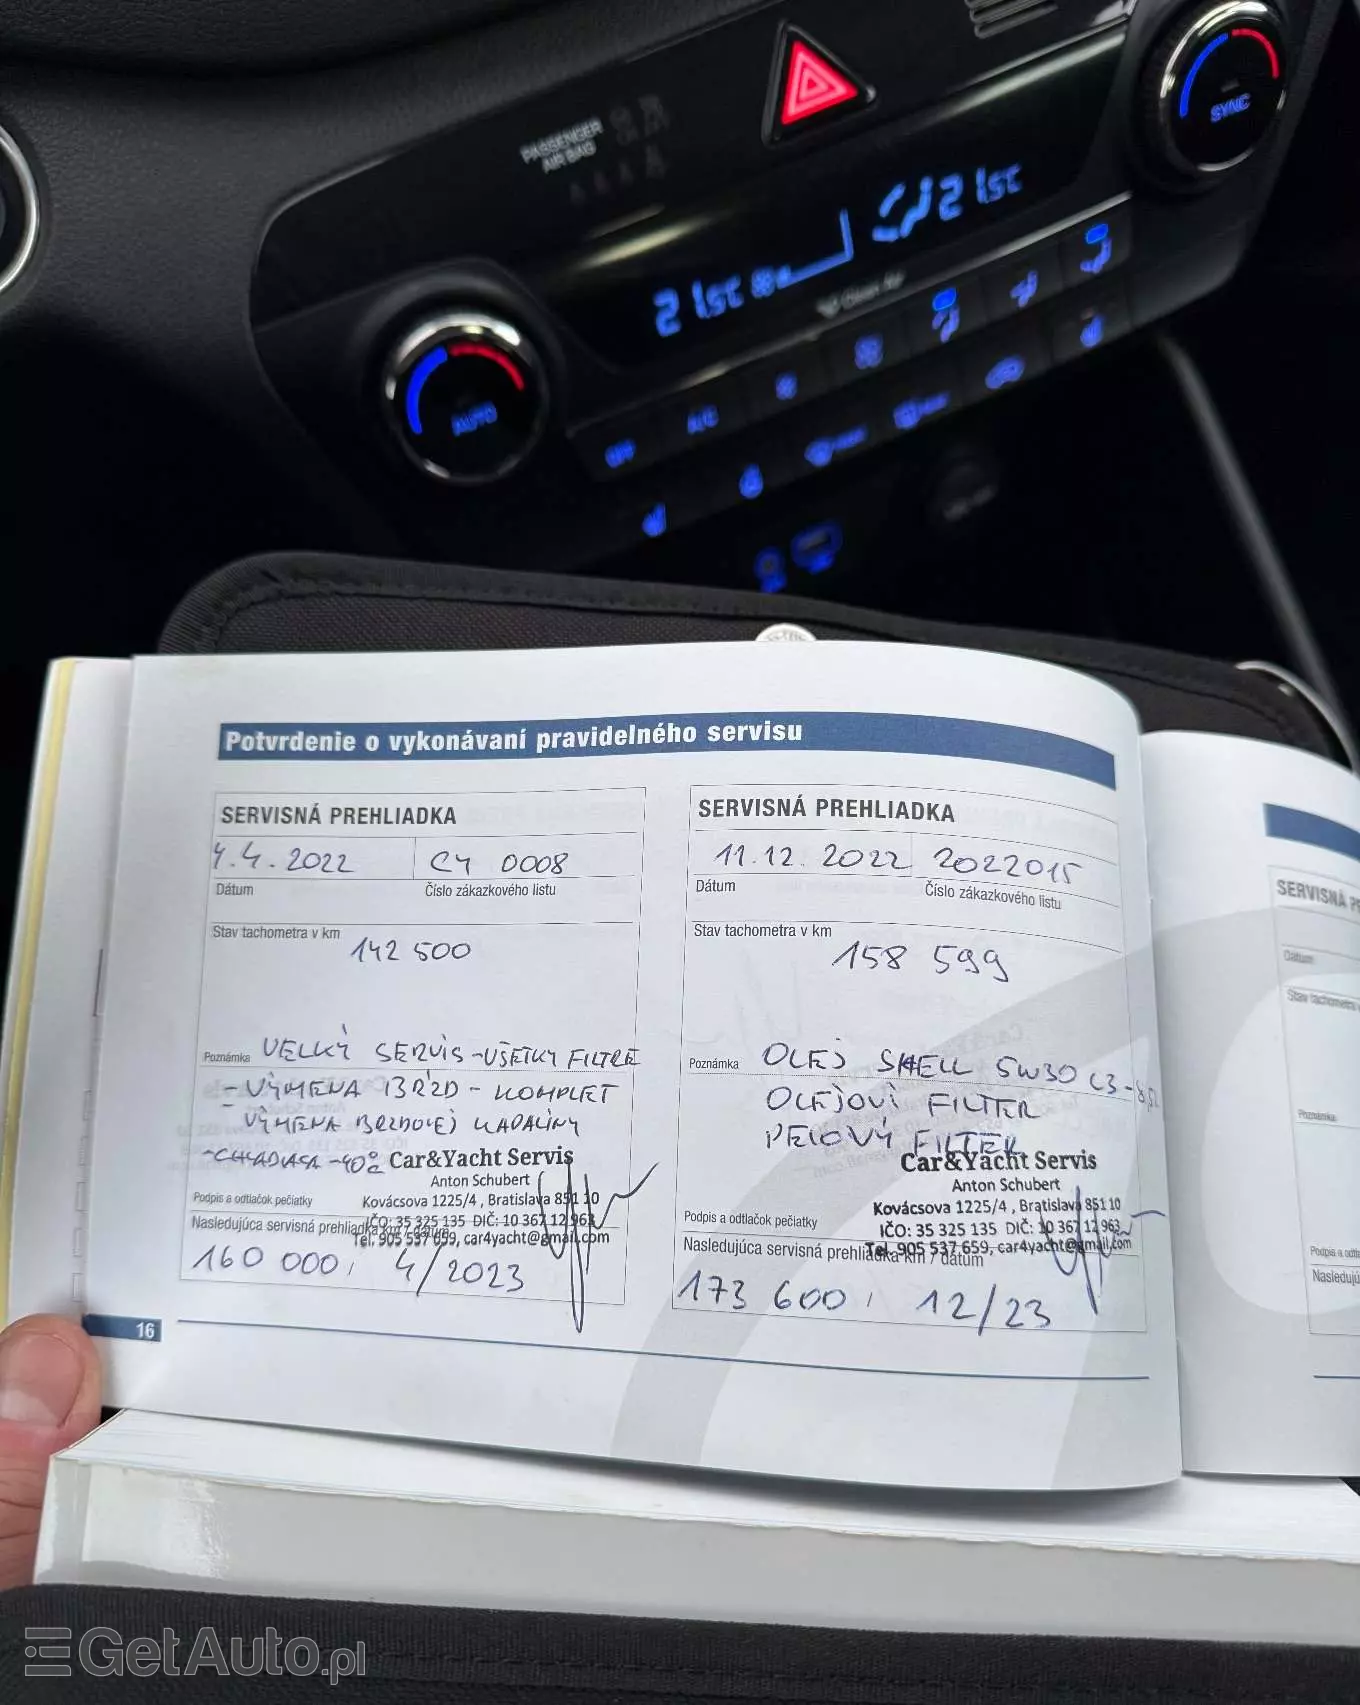 PASSENGER
AIR BAG
SYNC
21.5C
21.5C
Clean Air
AUTO
OFF
A/C
Potvrdenie o vykonávaní pravidelného servisu
SERVISNÁ PREHLIADKA
4.4.2022
C4 0008
Dátum
Číslo zákazkového listu
Stav tachometra v km
142 500
Poznámka VELKÝ SERVIS - VŠETKY FILTRE
- VÝMENA BŔZD - KOMPLET
VÝMENA BRZDOVEJ KVAPALINY
- CHLADIACA -40°C
Car&Yacht Servis
Anton Schubert
Podpis a odtlačok pečiatky
Kovácsova 1225/4 , Bratislava 851 10
IČO: 35 325 135 DIČ: 10 367 12 963
Tel. 905 537 659, car4yacht@gmail.com
Nasledujúca servisná prehliadka km / dátum
160 000, 4/2023
SERVISNÁ PREHLIADKA
11.12.2022
2022015
Dátum
Číslo zákazkového listu
Stav tachometra v km
158 599
Poznámka OLEJ SHELL 5W30 C3-
OLEJOVÝ FILTER
PEĽOVÝ FILTER
Car&Yacht Servis
Anton Schubert
Kovácsova 1225/4 , Bratislava 851 10
Podpis a odtlačok pečiatky
IČO: 35 325 135 DIČ: 10 367 12 963
Tel. 905 537 659, car4yacht@gmail.com
Nasledujúca servisná prehliadka km / dátum
173 600, 12/23
16
SERVISNÁ
Dátum
Stav tachometra
Poznámka
Podpis a
GetAuto.pl